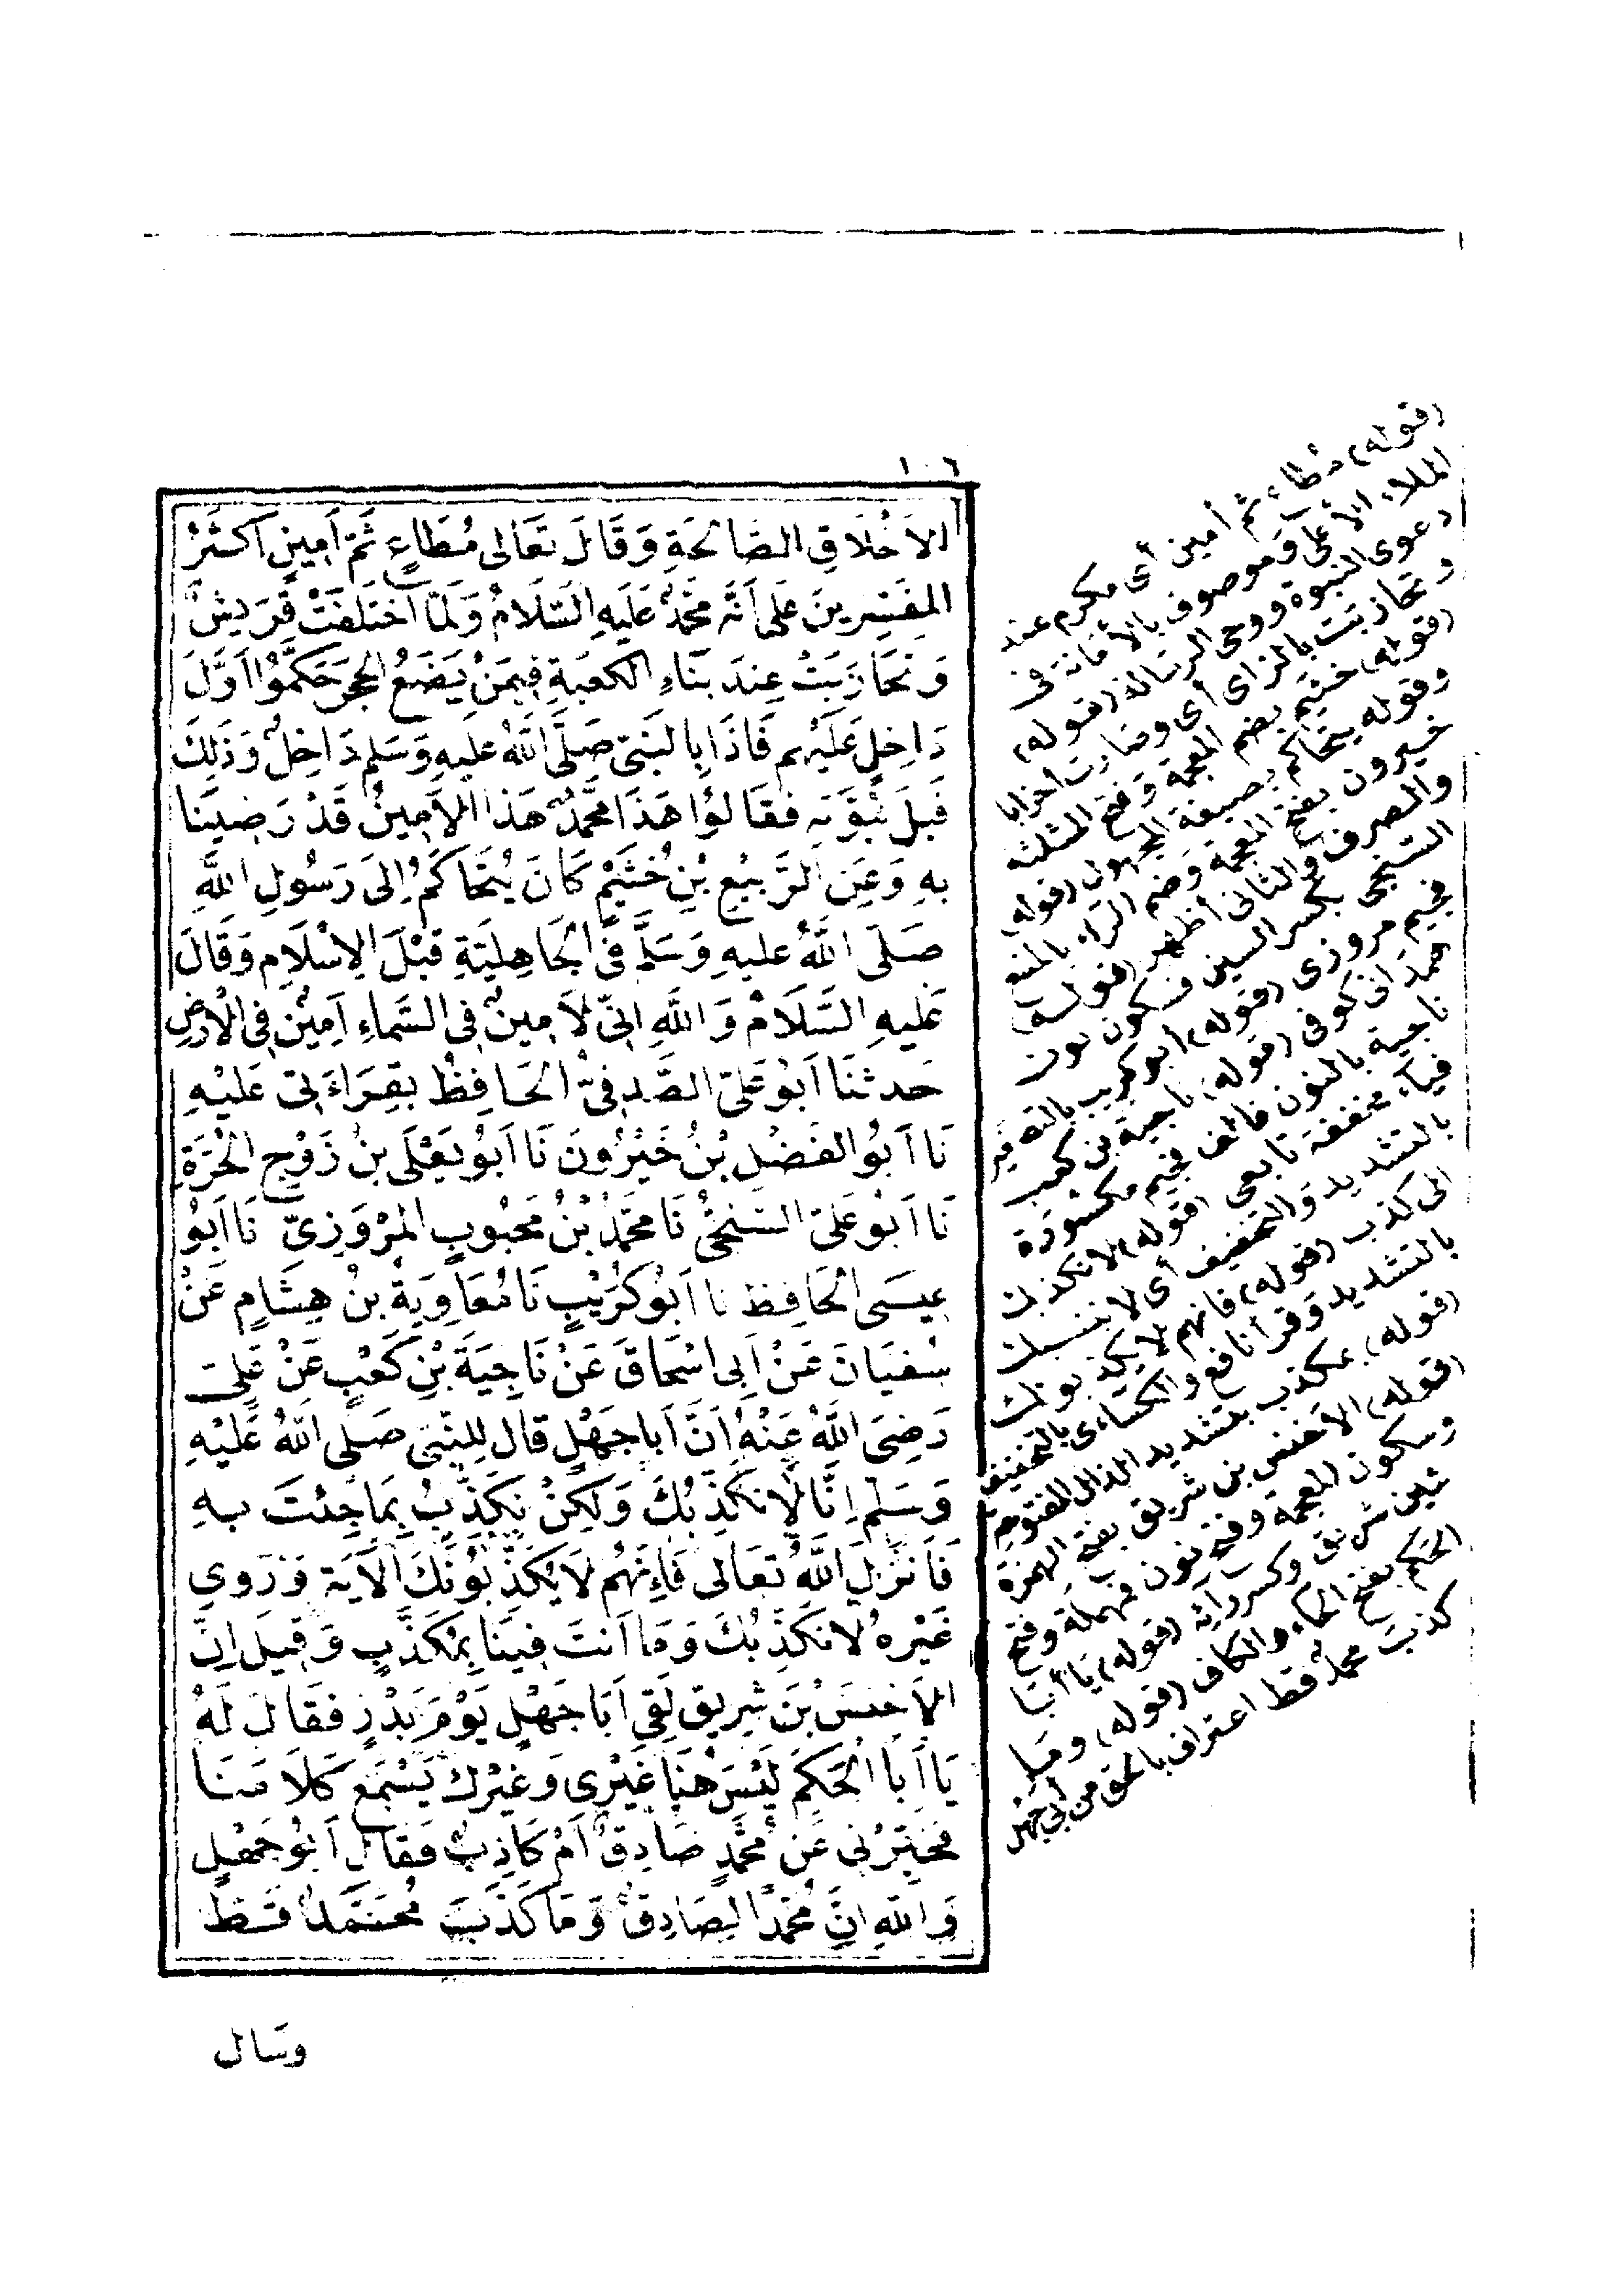 ١٠٦
الاَخْلَاقِ الصَّالِحَةِ وَقَالَ تَعَالى مُطَاعٍ ثَمَّ اَمِينٍ اَكْثَرُ
المفَسِّرِينَ عَلى اَنَّهُ مُحَمَّدٌ عَلَيهِ السَّلَامُ وَلَمَّا اخْتَلَفَتْ قُرَيشٌ
وَتَحَازَبَتْ عِندَ بَنَاءِ الكعبَةِ فِيمَنْ يَضَعُ الحجَرَ حَكَّمُوا اَوَّلَ
دَاخِلٍ عَلَيْهِم فَاذَا بِالنَّبيّ صَلَّى اللَّهُ عليهِ وَسَلم دَاخِلٌ وَذَلِكَ
قَبلَ نُبُوَّتِهِ فقَالُوا هَذَا مُحَمَّدٌ هَذا الاَمِينُ قَدْ رَضِينَا
بهِ وَعَنِ الرَّبيعِ بْنِ خُثَيْمٍ كَانَ يُتَحَاكَمُ اِلىَ رَسُولِ اللَّهِ
صَلّى اللَّهُ عليهِ وَسَلَّمَ فى الجَاهِلِيَّةِ قَبْلَ الِاسْلَامِ وَقَالَ
عَليهِ السَّلَامُ وَاللَّهِ اِنّى لَاَمِينٌ فى السَّماءِ اَمِينٌ فِى الْاَرْضِ
حَدثنَا اَبُو عَلىّ الصَّدِفىّ الحَافِظُ بقِرَاءَتى عَليْهِ
نَا اَبُو الفَضْلِ بْنُ خَيْرُونَ نَا اَبُو يَعْلَى بنُ زَوْجِ الحُرَّةِ
نَا اَبُو عَلىّ السِّنجىُّ نَا مُحَمَّدُ بْنُ مَحبُوبٍ المَرْوَزِىّ نَا اَبُو
عِيسَى الحَافِظ نا اَبُو كُرَيْبٍ نَا مُعَاوِيَةُ بنُ هِشَامٍ عَنْ
سُفيَانَ عَنْ اَبى اسْحَاقَ عَنْ نَاجِيَةَ بْنِ كَعْبٍ عَنْ عَلىّ
رَضِىَ اللَّهُ عَنْهُ اَنَّ اَباجَهْلٍ قال لِلنَّبى صَلى اللَّهُ عَليْهِ
وَسَلم اِنَّا لَا نكَذّبُكَ وَلكِنْ نكَذّبُ بِمَا جِئتَ بهِ
فَاَنزَلَ اللَّهُ تعَالى فَاِنَّهُم لَا يُكَذّبُونَكَ الاَيَة وَرَوى
غَيْرهُ لَا نكَذّبُكَ وَمَا اَنتَ فِينَا بمُكَذَّبٍ وَقِيلَ اِنَّ
الاَخنسَ بْنَ شَرِيق لَقِىَ اَبَا جَهْلٍ يَوْمَ بَدْرٍ فقَالَ لَهُ
يَا اَبَا الحَكَم لَيْسَ هُنَا غَيْرِى وَغَيْرُكَ يَسْمَع كَلَامَنَا
تخبرُنى عَنْ مُحَمَّدٍ صَادِقٌ اَمْ كَاذِبٌ فَقَالَ اَبُو جَهْلٍ
وَاللهِ اِنَّ مُحَمَّدًا لصَادِقٌ وَمَا كَذَبَ مُحَمَّدٌ قَطُّ
وَسَال
(قوله) مطاع ثم أمين أى مكرم عند
الملاء الأعلى وموصوف بالأمانة فى
دعوى النبوة ووحى الرسالة (قوله)
وتحازبت بالزاى أى وصارت احزابا
(قوله) خثيم بضم المعجمة وفتح المثلثه
وقوله يتحاكم بصيغة المجهول (قوله)
خيرون بفتح المعجمة وضم الراء بالمنع
والصرف والثانى أظهر (قوله)
السنجى بكسر السين فسكون نون
فجيم مروزى (قوله) ابو كريب بالتصغير
همدانى كوفى (قوله) ناجية بن كعب
ناجية بالنون فالف فجيم مكسورة
فياء مخففة تابعى (قوله) لا نكذبك
بالتشديد والتخفيف أى لا ننسبك
الى كذب (قوله) فانهم لا يكذبونك
بالتشديد وقرأ نافع والكسائى بالتخفيف
(قوله) بمكذب بتشديد الذال المفتوحة
(قوله) الأخنس بن شريق بفتح الهمزة
وسكون المعجمة وفتح نون فمهملة وفتح
شين شريق وكسر رائه (قوله) يا أبا
الحكم بفتح الحاء والكاف (قوله) وما
كذب محمد قط اعتراف بالحق من أبى جهل